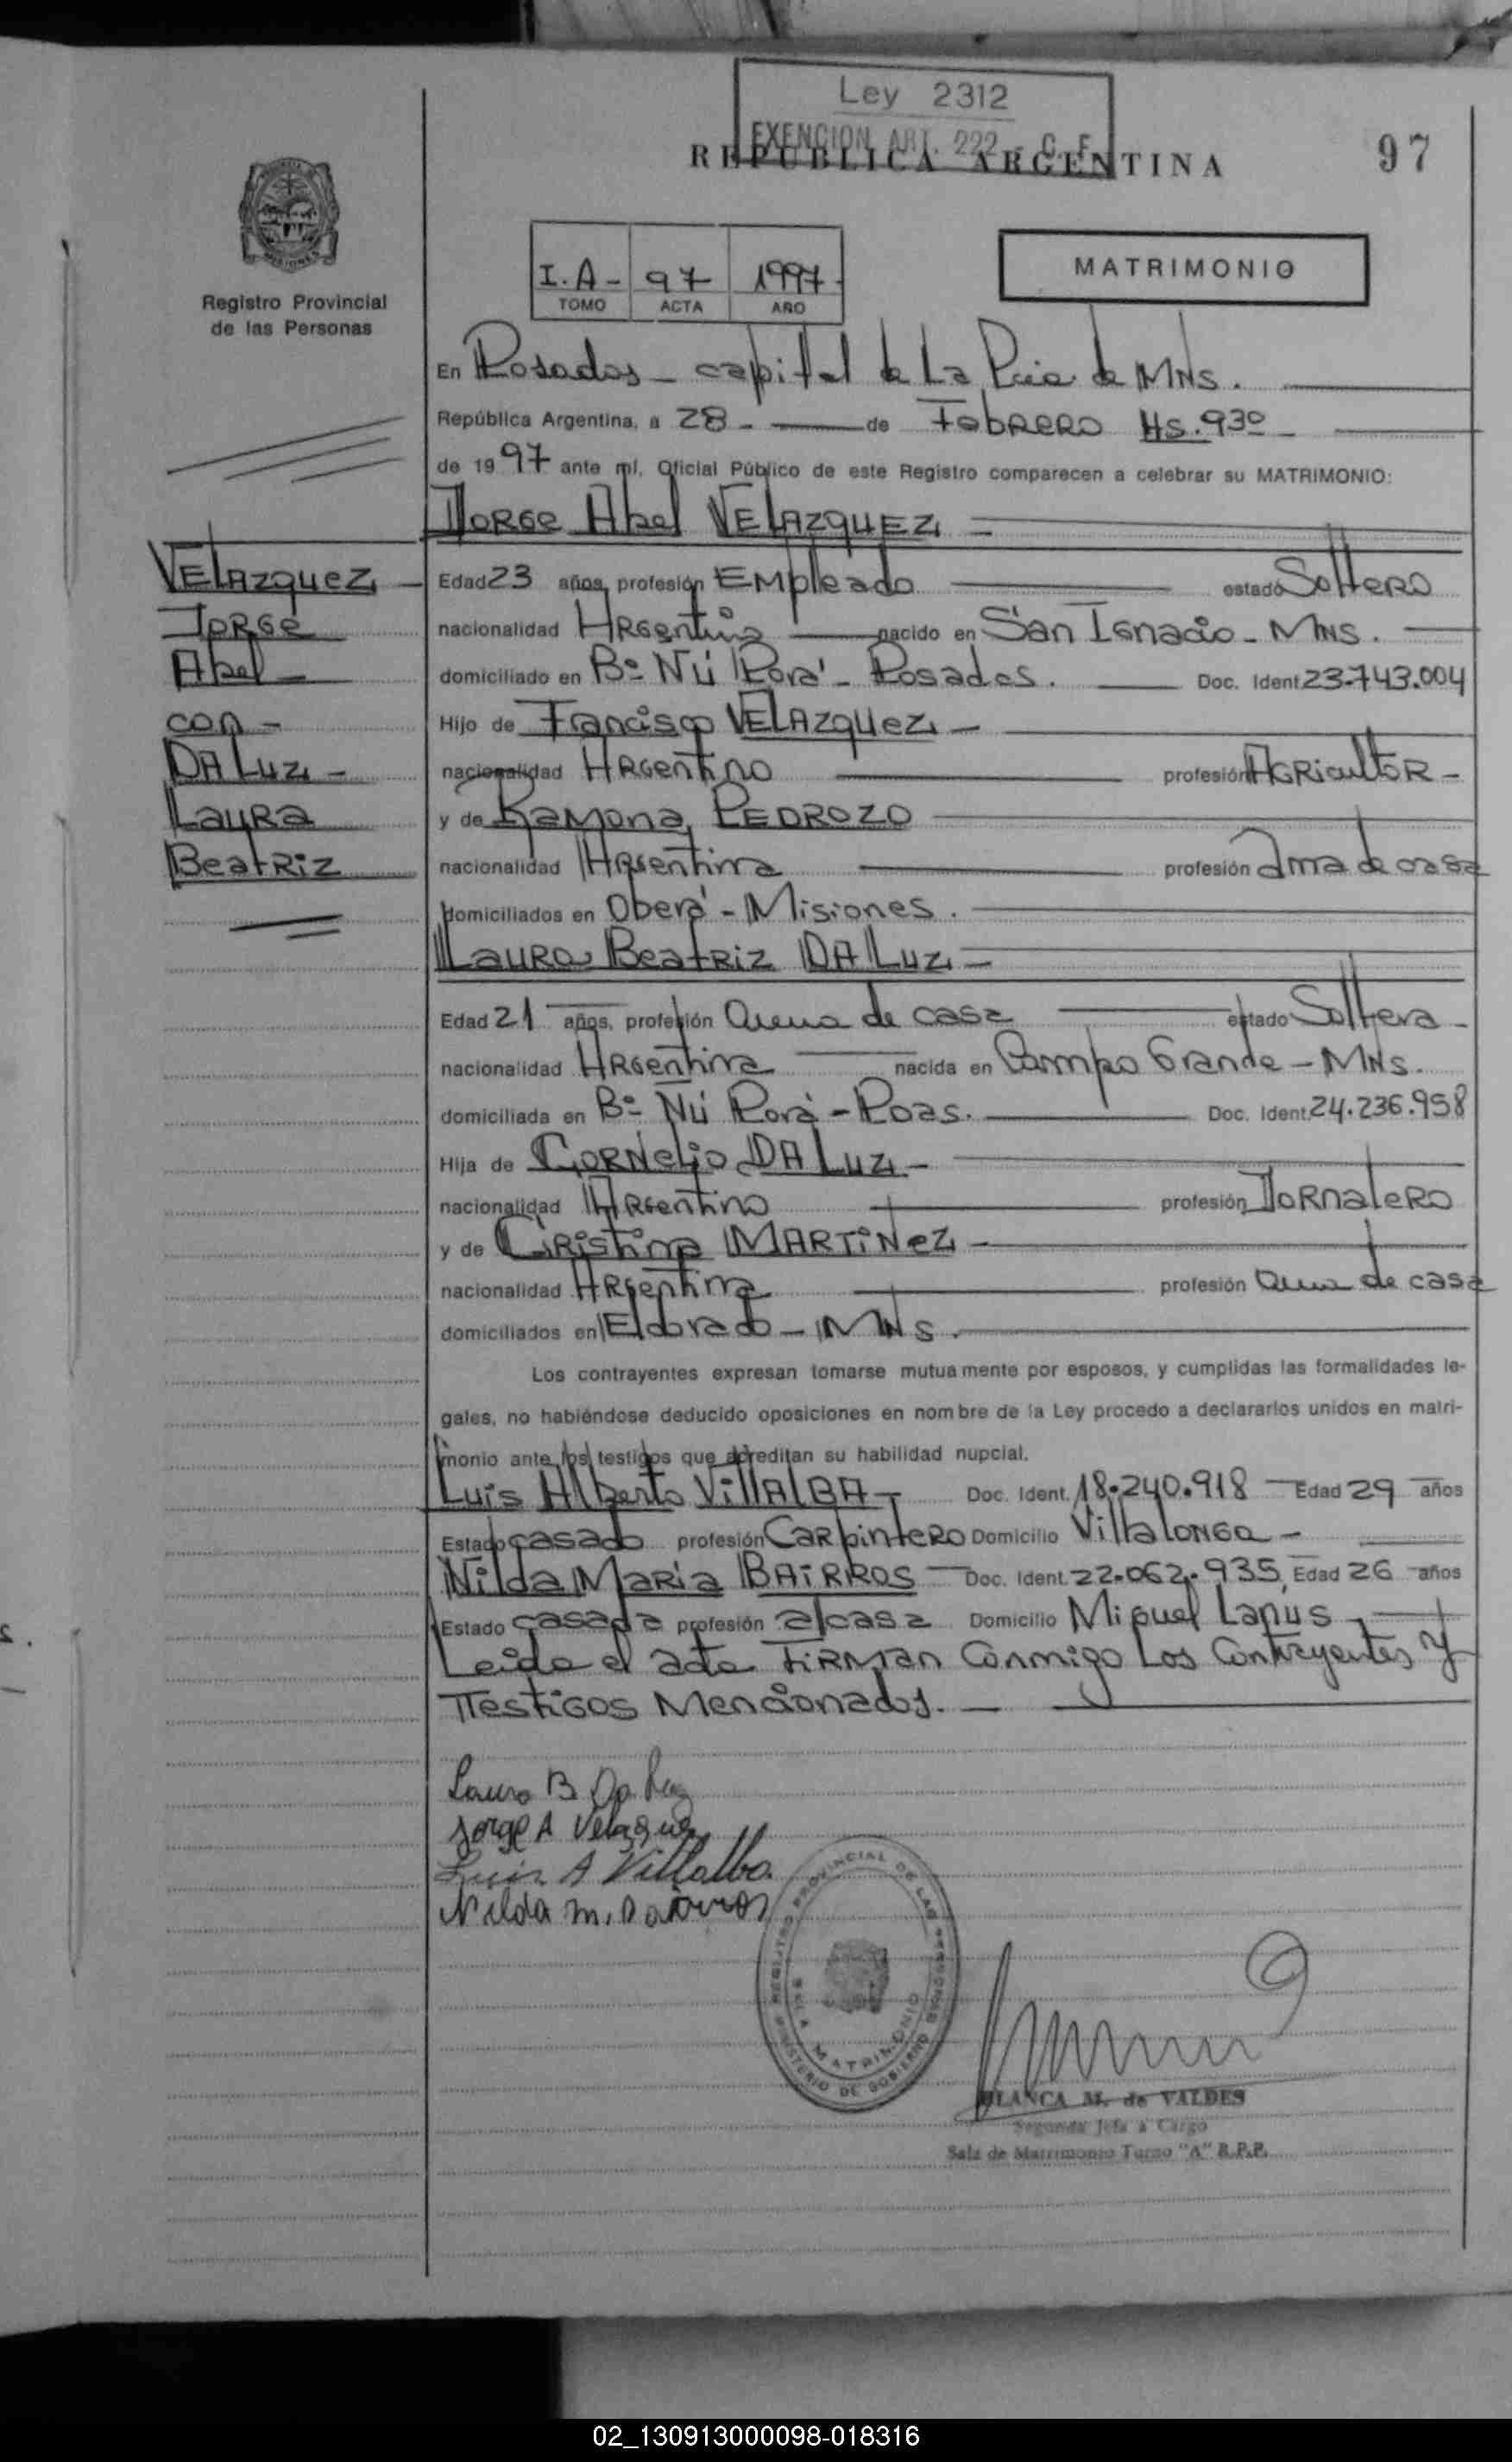 Ley 2312
EXENCION ART. 222 - C. F.
REPUBLICA ARGENTINA
97
Registro Provincial
de las Personas
I.A- 97 1997-
TOMO ACTA AÑO
MATRIMONIO
En Posadas - capital de La Pcia. de MNS.
República Argentina, a 28 - de Febrero Hs. 9³⁰ -
de 1997 ante mí, Oficial Público de este Registro comparecen a celebrar su MATRIMONIO:
Jorge Abel VELAZQUEZ -
Velazquez -
Jorge
Abel -
con -
DA Luz -
Laura
Beatriz
Edad 23 años, profesión Empleado estado Soltero
nacionalidad Argentina nacido en San Ignacio - MNS.
domiciliado en Bº Ñú Porá - Posadas. Doc. Ident. 23.743.004
Hijo de Francisco VELAZQUEZ -
nacionalidad Argentino profesión Agricultor -
y de Ramona PEDROZO
nacionalidad Argentina profesión ama de casa
domiciliados en Oberá - Misiones.
Laura Beatriz DA LUZ -
Edad 21 años, profesión ama de casa estado Soltera -
nacionalidad Argentina nacida en Campo Grande - MNS.
domiciliada en Bº Ñú Porá - Poas. Doc. Ident. 24.236.958
Hija de Cornelio DA LUZ -
nacionalidad Argentino profesión Jornalero
y de Cristina MARTINEZ -
nacionalidad Argentina profesión ama de casa
domiciliados en Eldorado - MNS.
Los contrayentes expresan tomarse mutuamente por esposos, y cumplidas las formalidades le-
gales, no habiéndose deducido oposiciones en nombre de la Ley procedo a declararlos unidos en matri-
monio ante los testigos que acreditan su habilidad nupcial.
Luis Alberto VILLALBA - Doc. Ident. 18.240.918 - Edad 29 años
Estado casado profesión Carpintero Domicilio Villalonga -
Nilda Maria BAIRROS - Doc. Ident. 22.062.935, Edad 26 años
Estado casada profesión a/casa Domicilio Miguel Lanus -
Leida el acta Firman Conmigo Los Contrayentes y
Testigos Mencionados. -
Laura B Da Luz
Jorge A Velazquez
Luis A Villalba
Nilda M. Bairros
REGISTRO PROVINCIAL DE LAS PERSONAS
SALA MATRIMONIO
MINISTERIO DE GOBIERNO
BLANCA M. de VALDES
Segunda Jefa a Cargo
Sala de Matrimonio Turno "A" R.P.P.
02_130913000098-018316